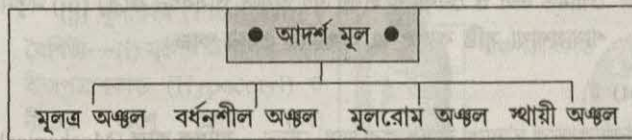 ● আদর্শ মূল ●
মূলত্র অঞ্চল বর্ধনশীল অঞ্চল মূলরোম অঞ্চল স্থায়ী অঞ্চল